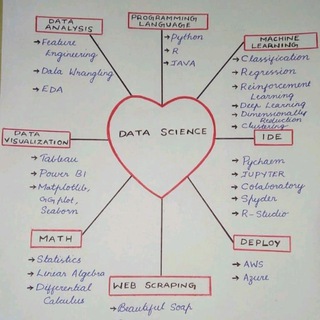 DATA
ANALYSIS
→ Feature
Engineering
→ Data Wrangling
→ EDA
PROGRAMMING
LANGUAGE
→ Python
→ R
→ JAVA
MACHINE
LEARNING
→ Classification
→ Regression
→ Reinforcement
Learning
→ Deep Learning
→ Dimensionally
Reduction
→ Clustering
DATA SCIENCE
DATA
VISUALIZATION
→ Tableau
→ Power BI
→ Matplotlib,
GGplot,
Seaborn
IDE
→ Pycharm
→ JUPYTER
→ Colaboratory
→ Spyder
→ R-Studio
MATH
→ Statistics
→ Linear Algebra
→ Differential
Calculus
WEB SCRAPING
→ Beautiful Soap
DEPLOY
→ AWS
→ Azure